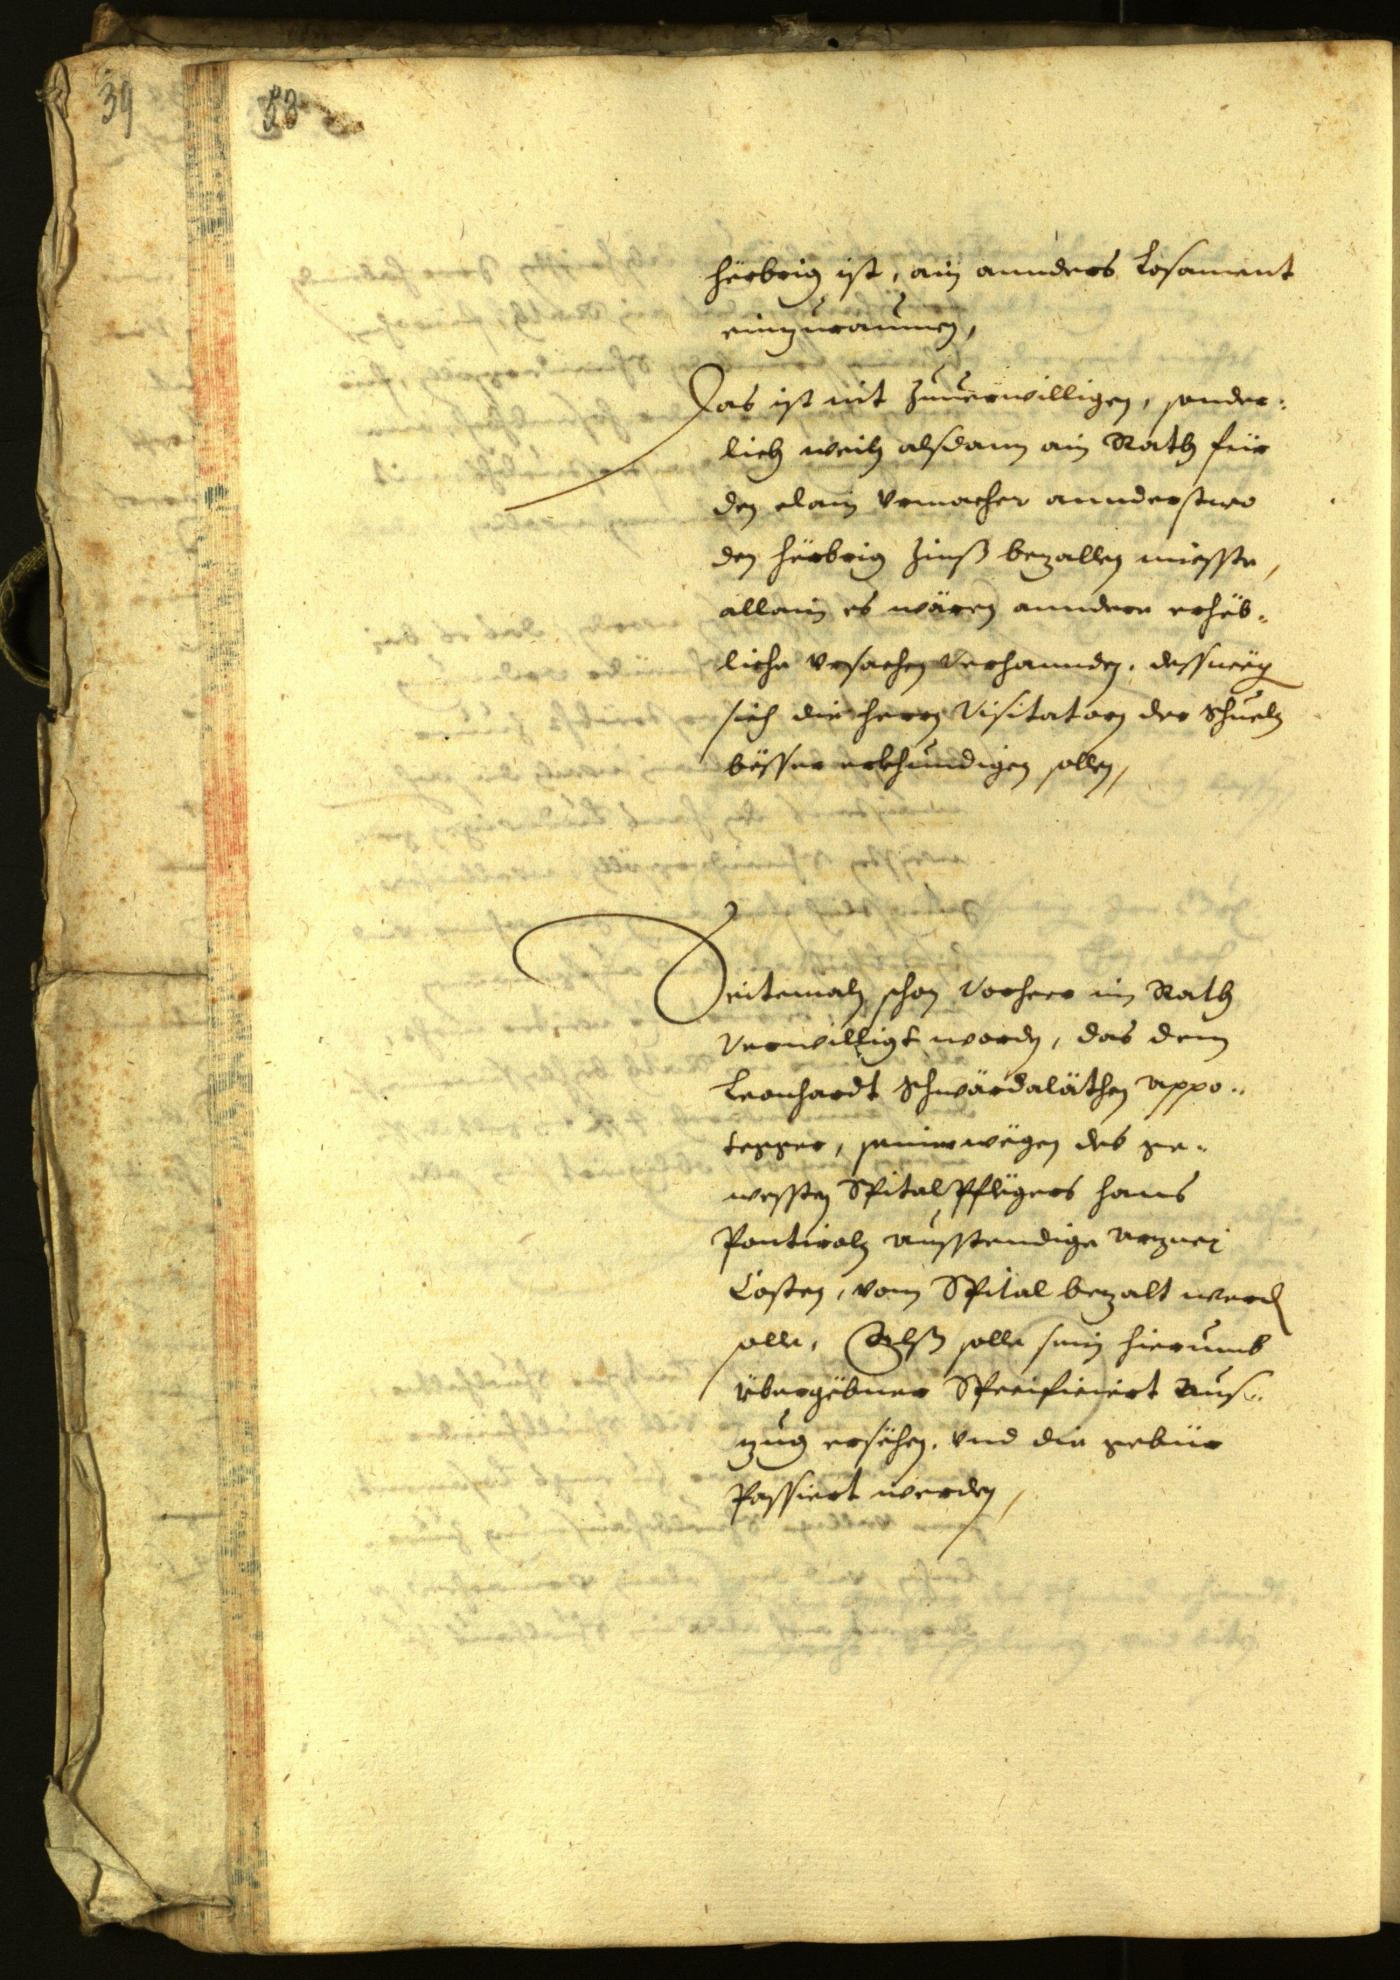 39
53
herbrig ist, ain annders Losament
einzuraumen,
Das ist nit zuuerwilligen, sonder-
lich weiln alsdann ain Rath für
den clain Vrmacher annderstwo
den herbrig Zinß bezallen miesste,
allain es wären anndere erheb-
liche Vrsachen Verhannden, desswegen
sich die herrn Visitatorn der Schueln
bësser erkhundigen sollen,
Seitemaln schon Vorherr im Rath
Verwilligt worden, das dem
Leonhardt Schwärdaläthen Appo-
tegger, seiner wëgen des ge-
wessten Spital Pflëgers hans
Pontiraln ausstendige Arzney
Cossten, vom Spital bezalt werden
solle, Alß solle sein hierumb
übergëbner Specificiert Aus-
zug ersëhen, vnd die gebür
Passiert werden,